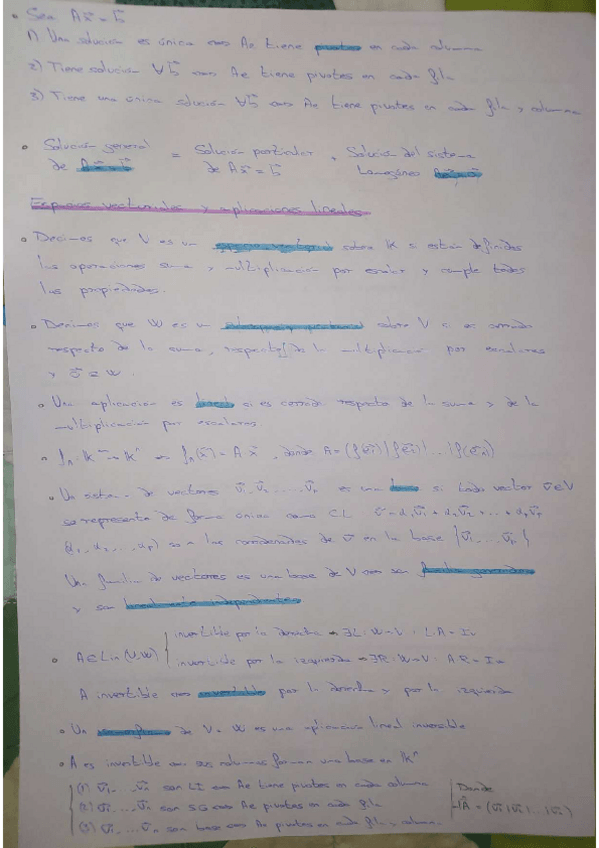 • Sea Ax⃗ = b⃗
1) Una solución es única ⟺ Ae tiene pivotes en cada columna
2) Tiene solución ∀b⃗ ⟺ Ae tiene pivotes en cada fila
3) Tiene una única solución ∀b⃗ ⟺ Ae tiene pivotes en cada fila y columna
• Solución general = Solución particular + Solución del sistema
de Ax⃗ = b⃗ de Ax⃗ = b⃗ homogéneo Ax⃗ = 0⃗
Espacios vectoriales y aplicaciones lineales
• Decimos que V es un espacio vectorial sobre K si están definidas
las operaciones suma y multiplicación por escalar y cumple todas
las propiedades.
• Decimos que W es un subespacio vectorial sobre V si es cerrado
respecto de la suma, respecto de la multiplicación por escalares
y
• Una aplicación es lineal si es cerrada respecto de la suma y de la
multiplicación por escalares.
donde A = (f(e⃗1) | f(e⃗2) | ... | f(e⃗n))
• Un sistema de vectores v⃗1, v⃗2, ..., v⃗n es una base si todo vector v⃗ ∈ V
se representa de forma única como CL v⃗ = α1v⃗1 + α2v⃗2 + ... + αpv⃗p
(α1, α2, ..., αp) son las coordenadas de v⃗ en la base {v⃗1, ..., v⃗p}
Una familia de vectores es una base de V ⟺ son familia generadora
y son linealmente independientes
• A ∈ Lin(V,W) { invertible por la derecha ⇒ ∃L: W→V : LA = Iv
invertible por la izquierda ⇒ ∃R: W→V : AR = Iw
A invertible ⟺ invertible por la derecha y por la izquierda
• Un isomorfismo de V → W es una aplicación lineal invertible
• A es invertible ⟺ sus columnas forman una base en Kⁿ
(1) v⃗1, ..., v⃗n son LI ⟺ Ae tiene pivotes en cada columna
(2) v⃗1, ..., v⃗n son SG ⟺ Ae pivotes en cada fila
(3) v⃗1, ..., v⃗n son base ⟺ Ae pivotes en cada fila y column.
Donde
A = (v⃗1 | v⃗2 | ... | v⃗n)